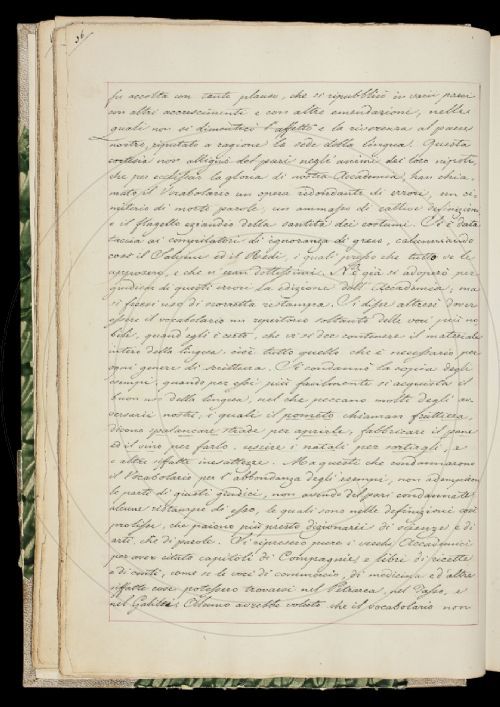 36
fu accolta con tanto plauso, che si ripubblicò in varii paesi
con altri accrescimenti e con altre emendazioni, nelle
quali non si dimenticò l'affetto e la riverenza al paese
nostro, riputato a ragione la sede della lingua. Questa
cortesia non allignò del pari negli animi dei loro nipoti,
che per ecclissar la gloria di nostra Accademia, han chia-
mato il Vocabolario un opera ridondante di errori, un ci-
miterio di morte parole, un ammasso di cattive definizioni
e il flagello eziandio della santità dei costumi. Si è data
taccia ai compilatori di ignoranza di greco, calunniando
così il Salvini ed il Redi, i quali
approvaro, e che
giudicar di questi errori la edizione dell'Accademia, ma
si fecero uso di scorretta ristampa. Si disse altresì dover
essere il vocabolario un repertorio soltanto delle voci più no-
bili, quand'egli è certo, che vi si dee contenere il materiale
intero della lingua, cioè tutto quello che è necessario per
ogni genere di scrittura. Si condannò la copia degli
esempi, quando per essi più facilmente si acquista il
buon uso della lingua, nel che peccano molti degli av-
versarii nostri, i quali il pometo chiaman frutteria,
dicono spalancare strade per aprirle, fabbricare il pane
ed il vino per farlo, uscire i natali per sortirgli, e
e altre siffatte inesattezze. Ma questi che condannarono
il Vocabolario per l'abbondanza degli esempi, non adempion
le parti di giusti giudici, non avendo del pari condannate
alcune ristampe di esso, le quali sono nelle definizioni così
prolisse, che paiono più presto dizionarii di scienze e di
arti, che di parole. Si ripresero pure i vecchi Accademici
per aver citato capitoli di Compagnie, e libri di ricette
e di conti, come se le voci di commercio, di medicina e d'altre
siffatte cose potessero trovarsi nel Petrarca, nel Tasso, e
nel Galileo. Alcuno avrebbe voluto che il vocabolario non